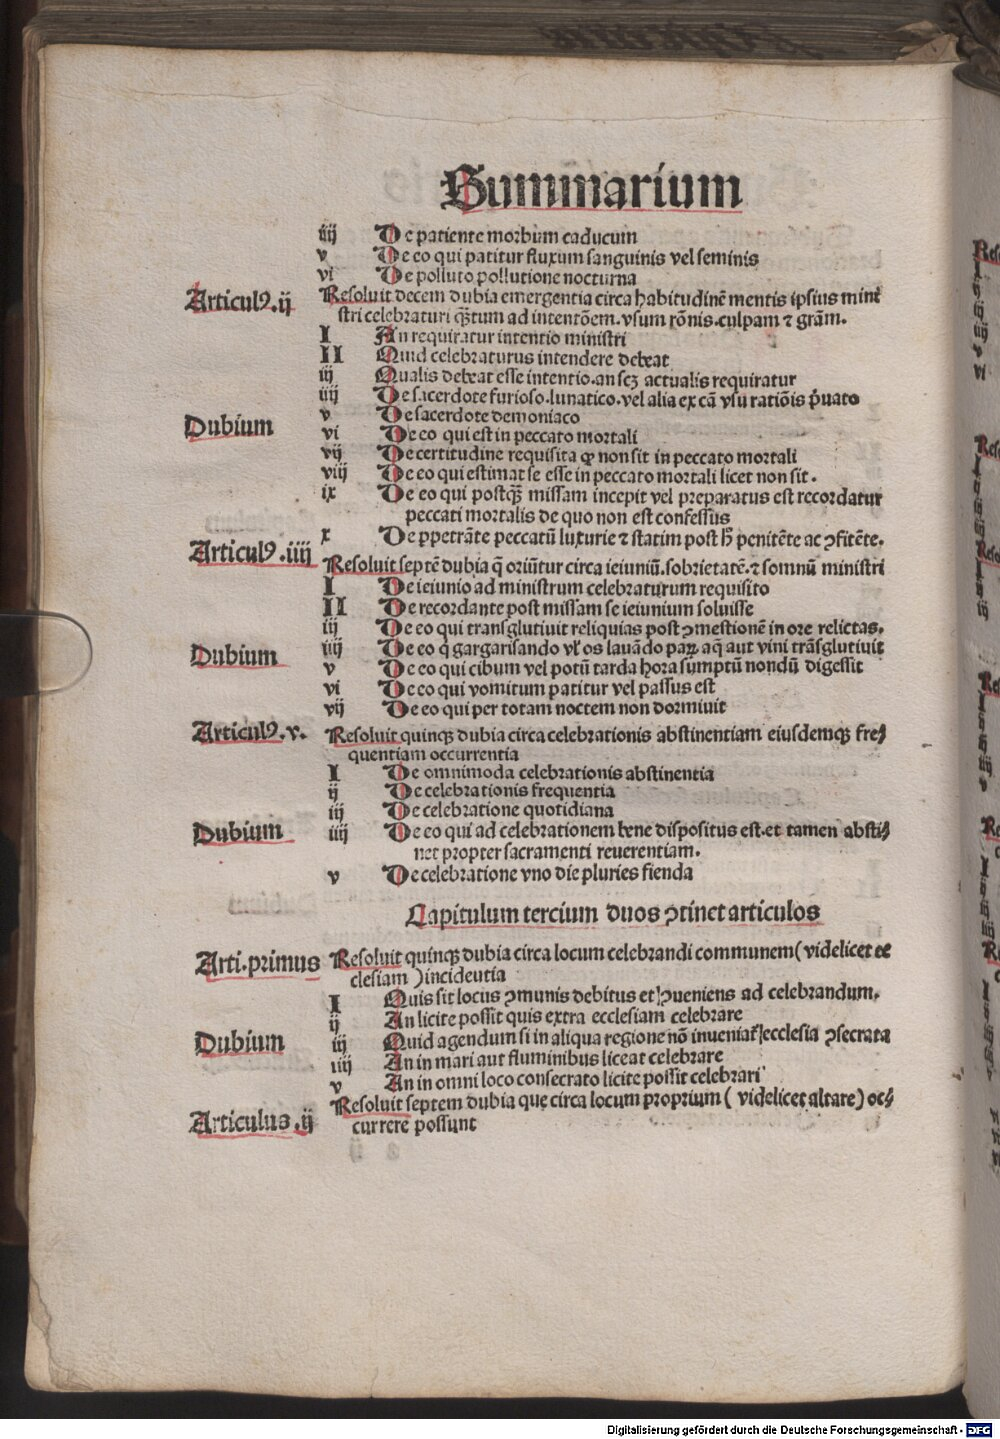 Summarium
iiij De patiente morbum caducum
v De eo qui patitur fluxum sanguinis vel seminis
vi De polluto pollutione nocturna
Articulꝰ.ij Resoluit decem dubia emergentia circa habitudinē mentis ipsius mini
stri celebraturi qꝫtum ad intentōem.vsum rōnis.culpam ⁊ grām.
I An requiratur intentio ministri
II Quid celebraturus intendere debeat
iij Qualis debeat esse intentio.an scꝫ actualis requiratur
iiij De sacerdote furioso.lunatico.vel alia ex cā vsu ratiōis p̄uato
v De sacerdote demoniaco
Dubium vi De eo qui est in peccato mortali
vij De certitudine requisita ꝙ non sit in peccato mortali
viij De eo qui estimat se esse in peccato mortali licet non sit.
ix De eo qui postqꝫ missam incepit vel preparatus est recordatur
peccati mortalis de quo non est confessus
x De ppetrāte peccatū luxurie ⁊ statim post h̄ penitēte ac ꝯfitēte.
Articulꝰ.iiij Resoluit septē dubia q̄ oriūtur circa ieiuniū.sobrietatē.⁊ somnū ministri
I De ieiunio ad ministrum celebraturum requisito
II De recordante post missam se ieiunium soluisse
iij De eo qui transglutiuit reliquias post ꝯmestionē in ore relictas.
Dubium iiij De eo q̇ gargarisando vl̕ os lauādo paꝝ aq̄ aut vini trāsglutiuit
v De eo qui cibum vel potū tarda hora sumptū nondū digessit
vi De eo qui vomitum patitur vel passus est
vij De eo qui per totam noctem non dormiuit
Articulꝰ.v. Resoluit quinqꝫ dubia circa celebrationis abstinentiam eiusdemqꝫ fre⸗
quentiam occurrentia
I De omnimoda celebrationis abstinentia
ij De celebrationis frequentia
iij De celebratione quotidiana
Dubium iiij De eo qui ad celebrationem bene dispositus est.et tamen absti⸗
net propter sacramenti reuerentiam.
v De celebratione vno die pluries fienda
Capitulum tercium duos ꝯtinet articulos
Arti.primus Resoluit quinqꝫ dubia circa locum celebrandi communem( videlicet ec
clesiam )incidentia
I Quis sit locus ꝯmunis debitus et ꝯueniens ad celebrandum.
ij An licite possit quis extra ecclesiam celebrare
Dubium iij Quid agendum si in aliqua regione nō inueniat̕ ecclesia ꝯsecrata
iiij An in mari aut fluminibus liceat celebrare
v An in omni loco consecrato licite possit celebrari
Articulus.ij Resoluit septem dubia que circa locum proprium ( videlicet altare) oc⸗
currere possunt
Digitalisierung gefördert durch die Deutsche Forschungsgemeinschaft - DFG